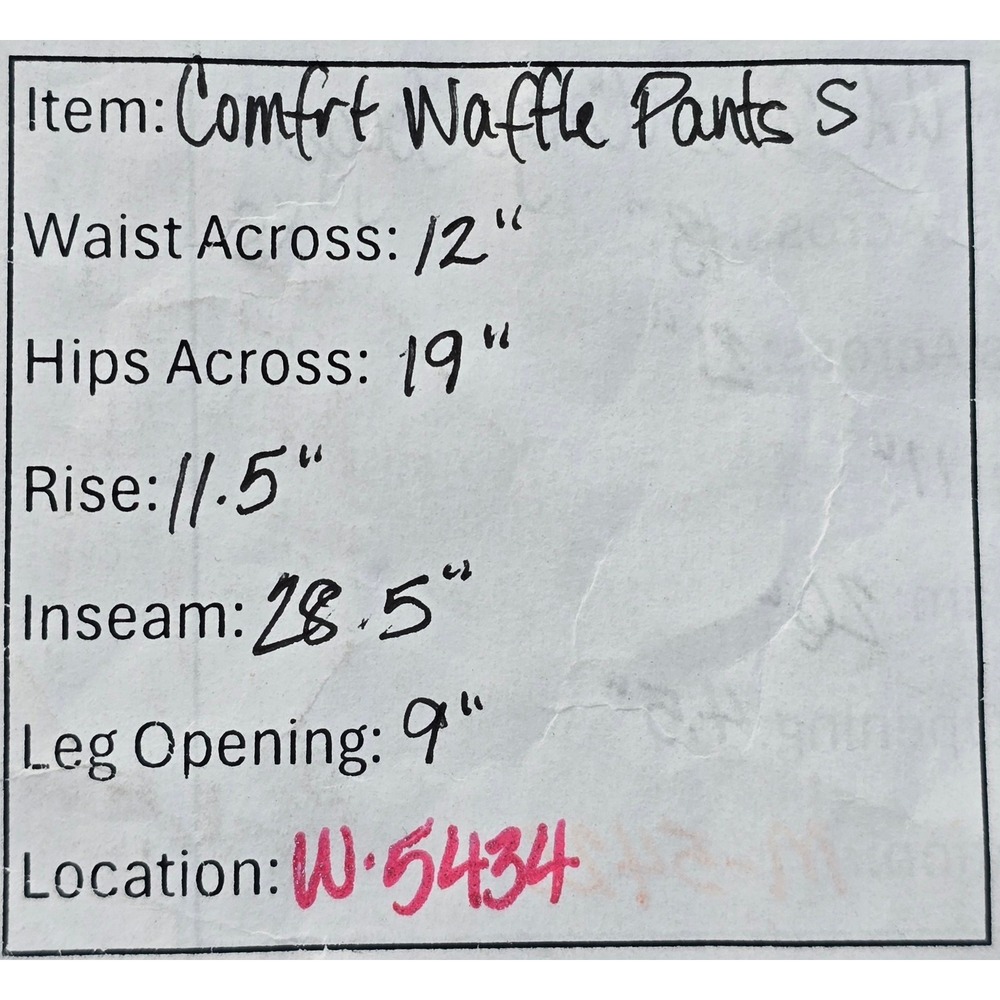 Item: Comfrt Waffle Pants S
Waist Across: 12"
Hips Across: 19"
Rise: 11.5"
Inseam: 28.5"
Leg Opening: 9"
Location: W-5434